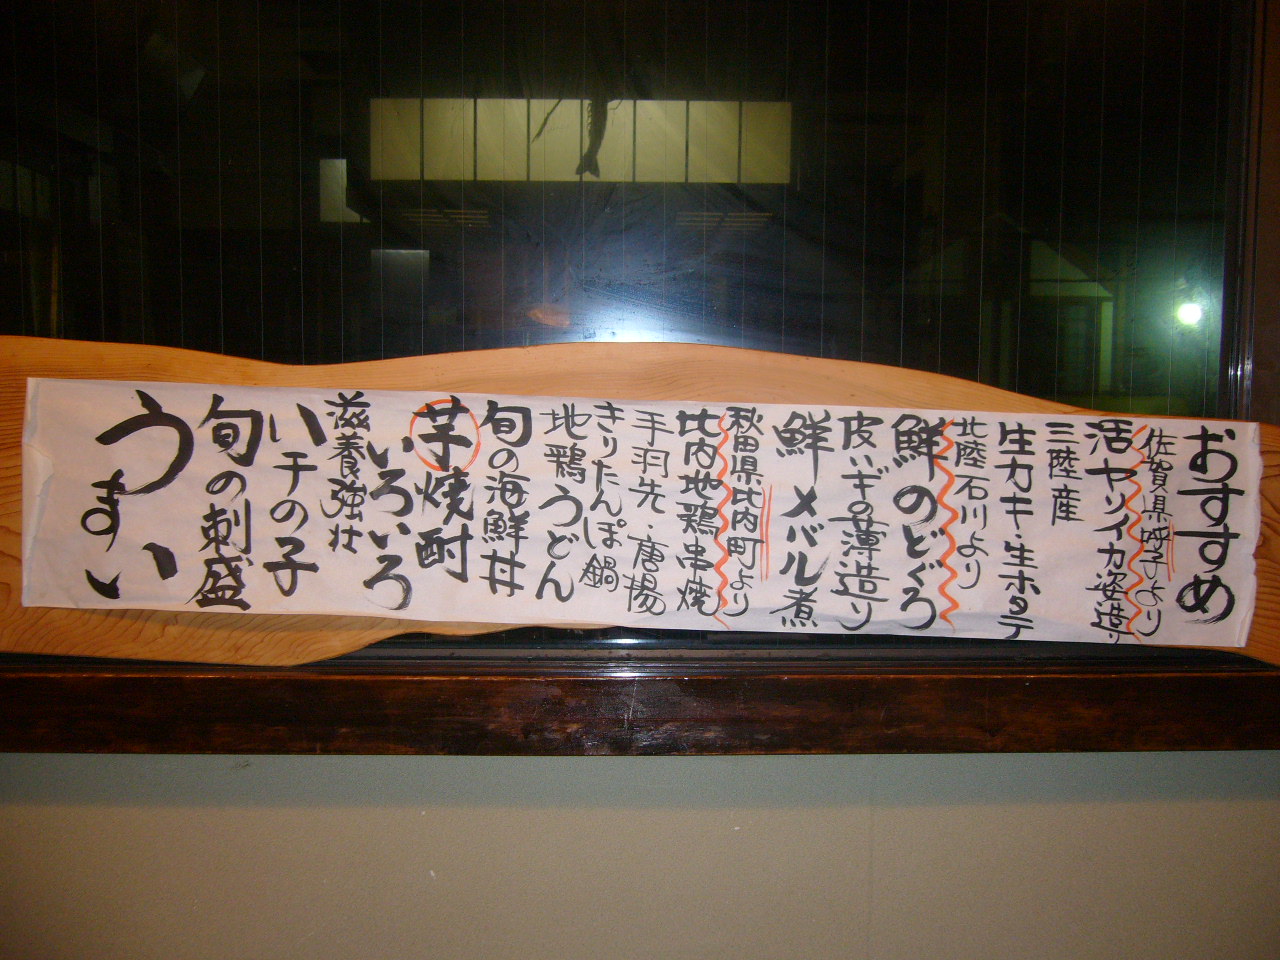 おすすめ
佐賀県呼子より
活ヤリイカ姿造り
三陸産
生カキ・生ホタテ
北陸石川より
鮮のどぐろ
皮ハギの薄造り
鮮メバル煮
秋田県比内町より
比内地鶏串焼
手羽先・唐揚
きりたんぽ鍋
地鶏うどん
旬の海鮮丼
芋焼酎
いろいろ
滋養強壮
ハチの子
旬の刺盛
うまい